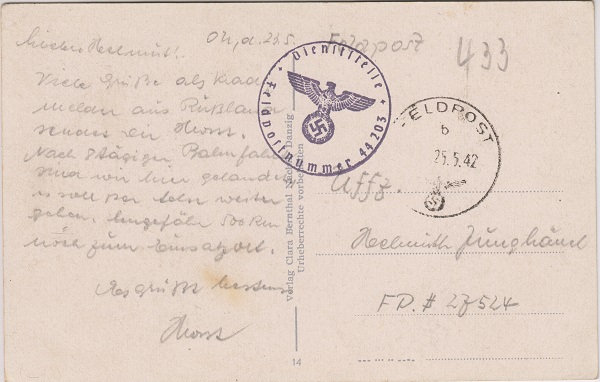 Lieber Helmut!
Viele Grüße als Krad
melder aus Rußland
sendet Dir Horst.
Nach 8tägiger Bahnfahrt
sind wir hier gelandet
es soll weiter
gehen. Ungefähr 500 km
noch zum Einsatzort.
Es grüßt bestens
Horst
O.U., d. 23.5.
Feldpost
433
Dienststelle
Feldpostnummer 44203
FELDPOST
b
25.5.42
Uffz.
Helmuth Junghänel
FP. # 27524
Verlag Clara Bernthal Nachf. Danzig
Urheberrechte vorbehalten
14